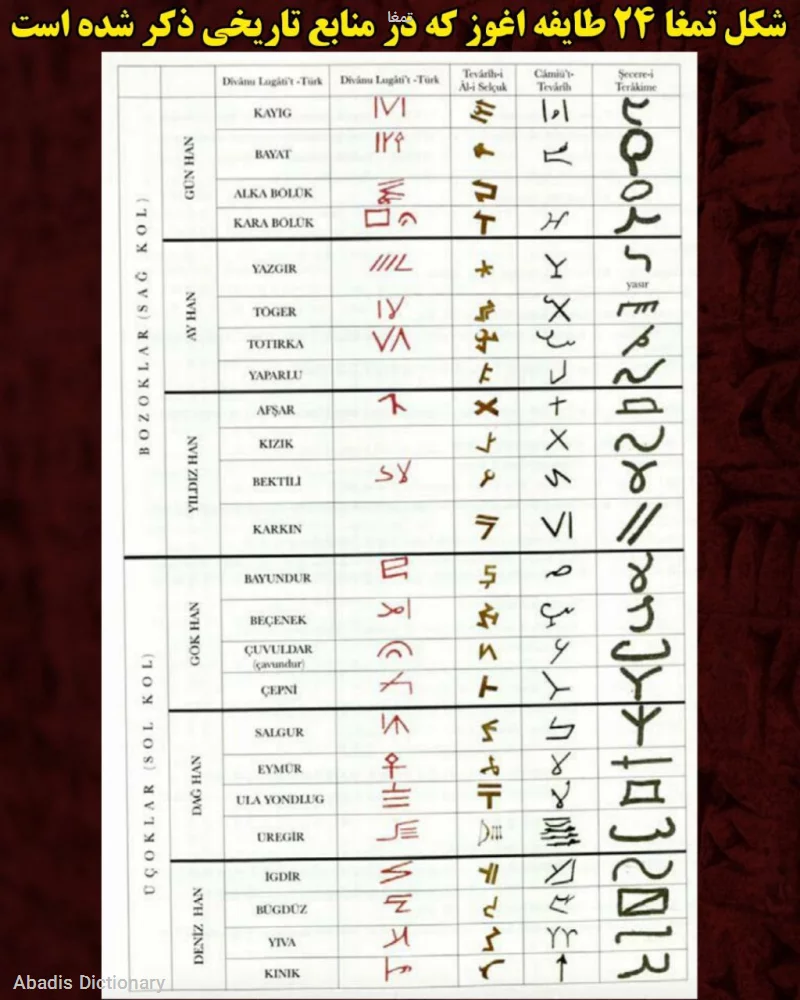 تمغا
شکل تمغا ۲۴ طایفه اغوز که در منابع تاریخی ذکر شده است
Dîvânu Lugâti't -Türk Dîvânu Lugâti't -Türk Tevârîh-i Âl-i Selçuk Câmiü't-Tevârîh Şecere-i Terâkime
BOZOKLAR (SAĞ KOL)
GÜN HAN
KAYIG
BAYAT
ALKA BÖLÜK
KARA BÖLÜK
AY HAN
YAZGIR
yasır
TÖGER
TOTIRKA
YAPARLU
YILDIZ HAN
AFŞAR
KIZIK
BEKTİLİ
KARKIN
ÜÇOKLAR (SOL KOL)
GÖK HAN
BAYUNDUR
BEÇENEK
ÇUVULDAR
(çavundur)
ÇEPNİ
DAĞ HAN
SALGUR
EYMÜR
ULA YONDLUG
ÜREGİR
DENİZ HAN
İGDİR
BÜGDÜZ
YIVA
KINIK
Abadis Dictionary